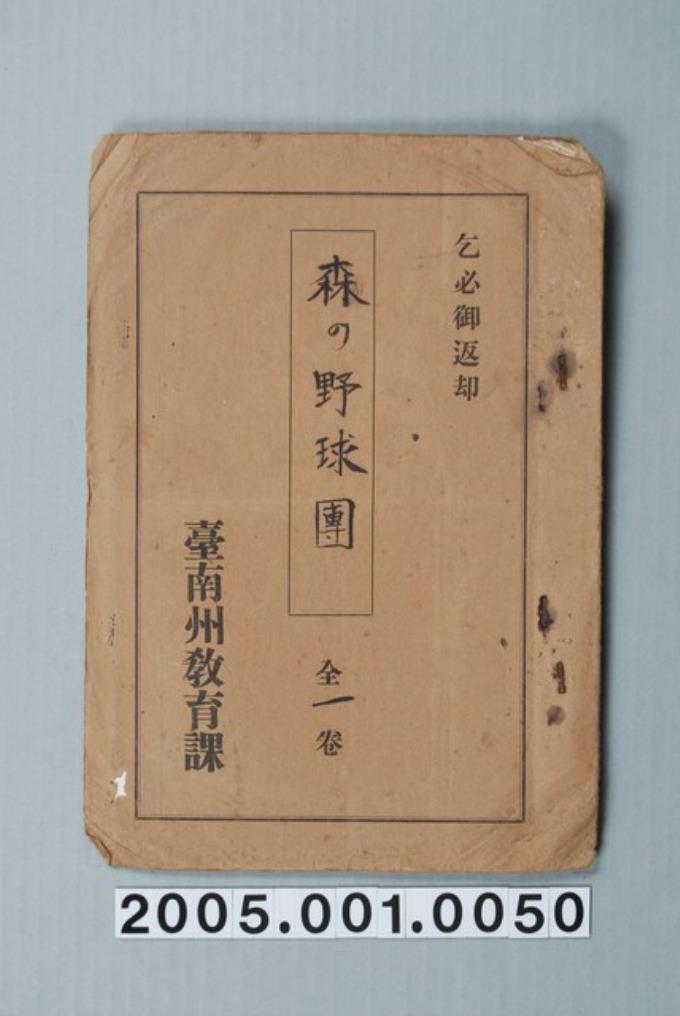 乞必御返却
森の野球團
全一卷
臺南州教育課
2005.001.0050